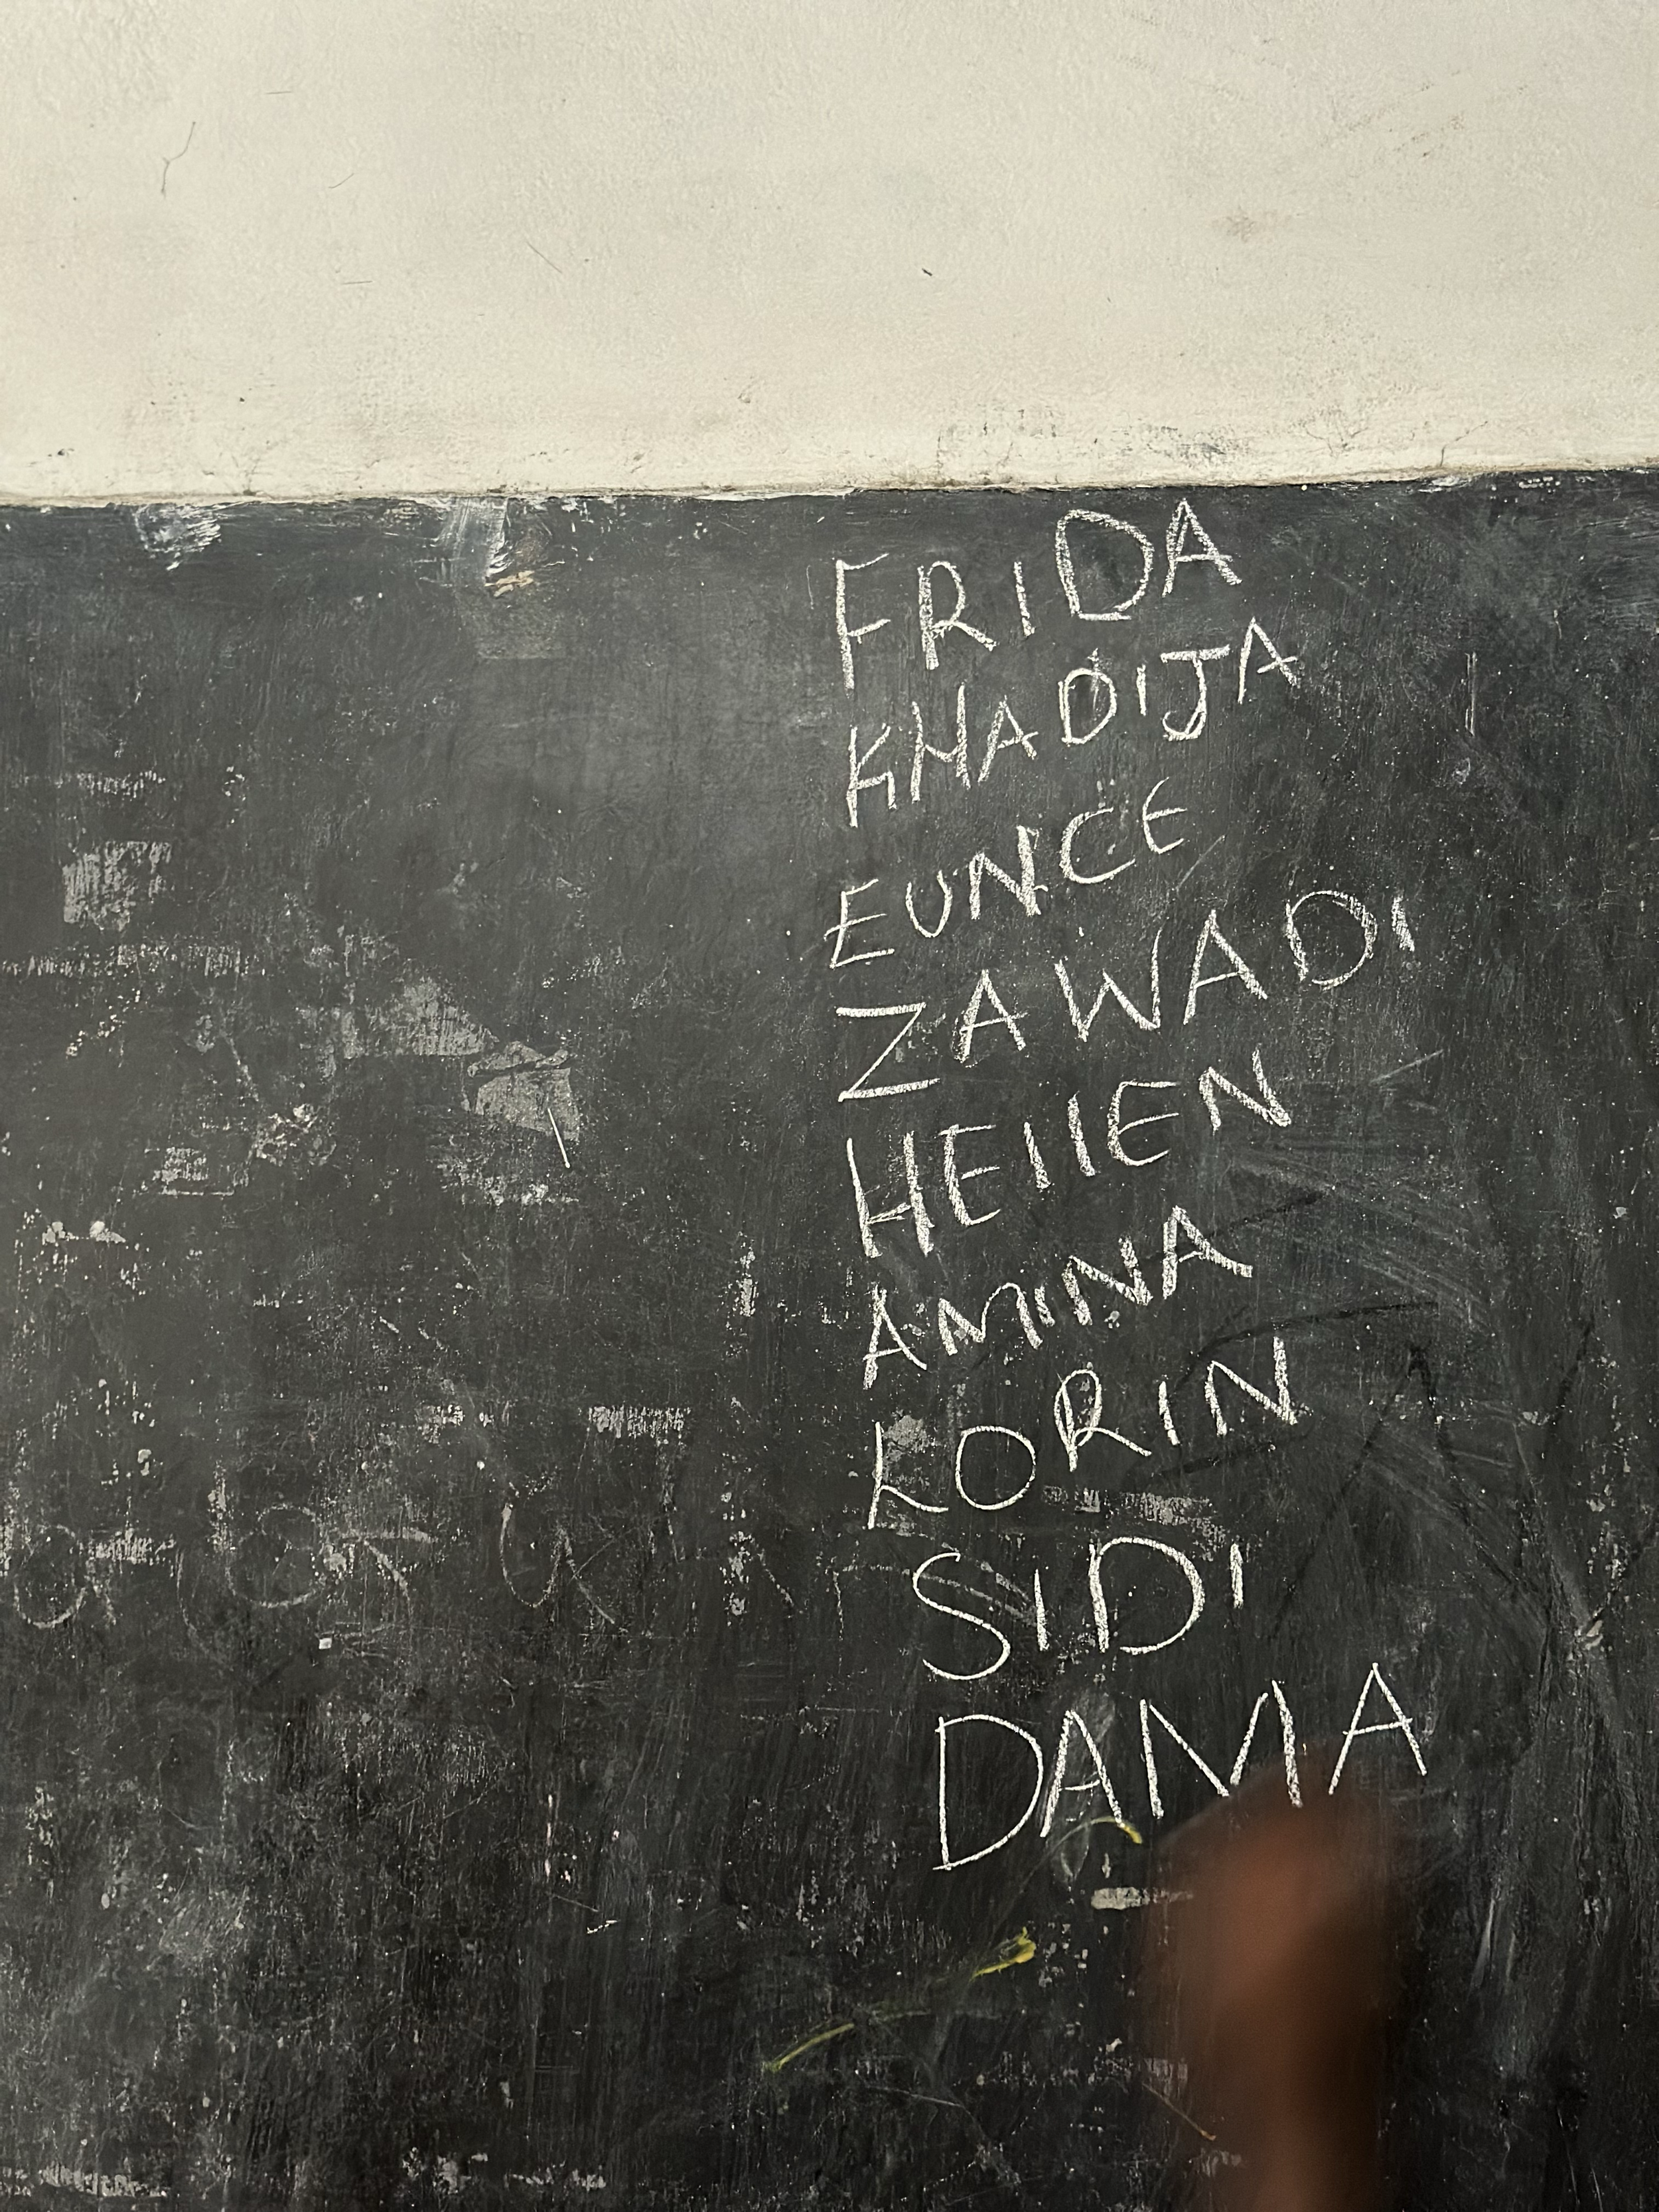 FRIDA
KHADIJA
EUNCE
ZAWADI
HEllEN
AMINA
LORIN
SIDI
DAMA